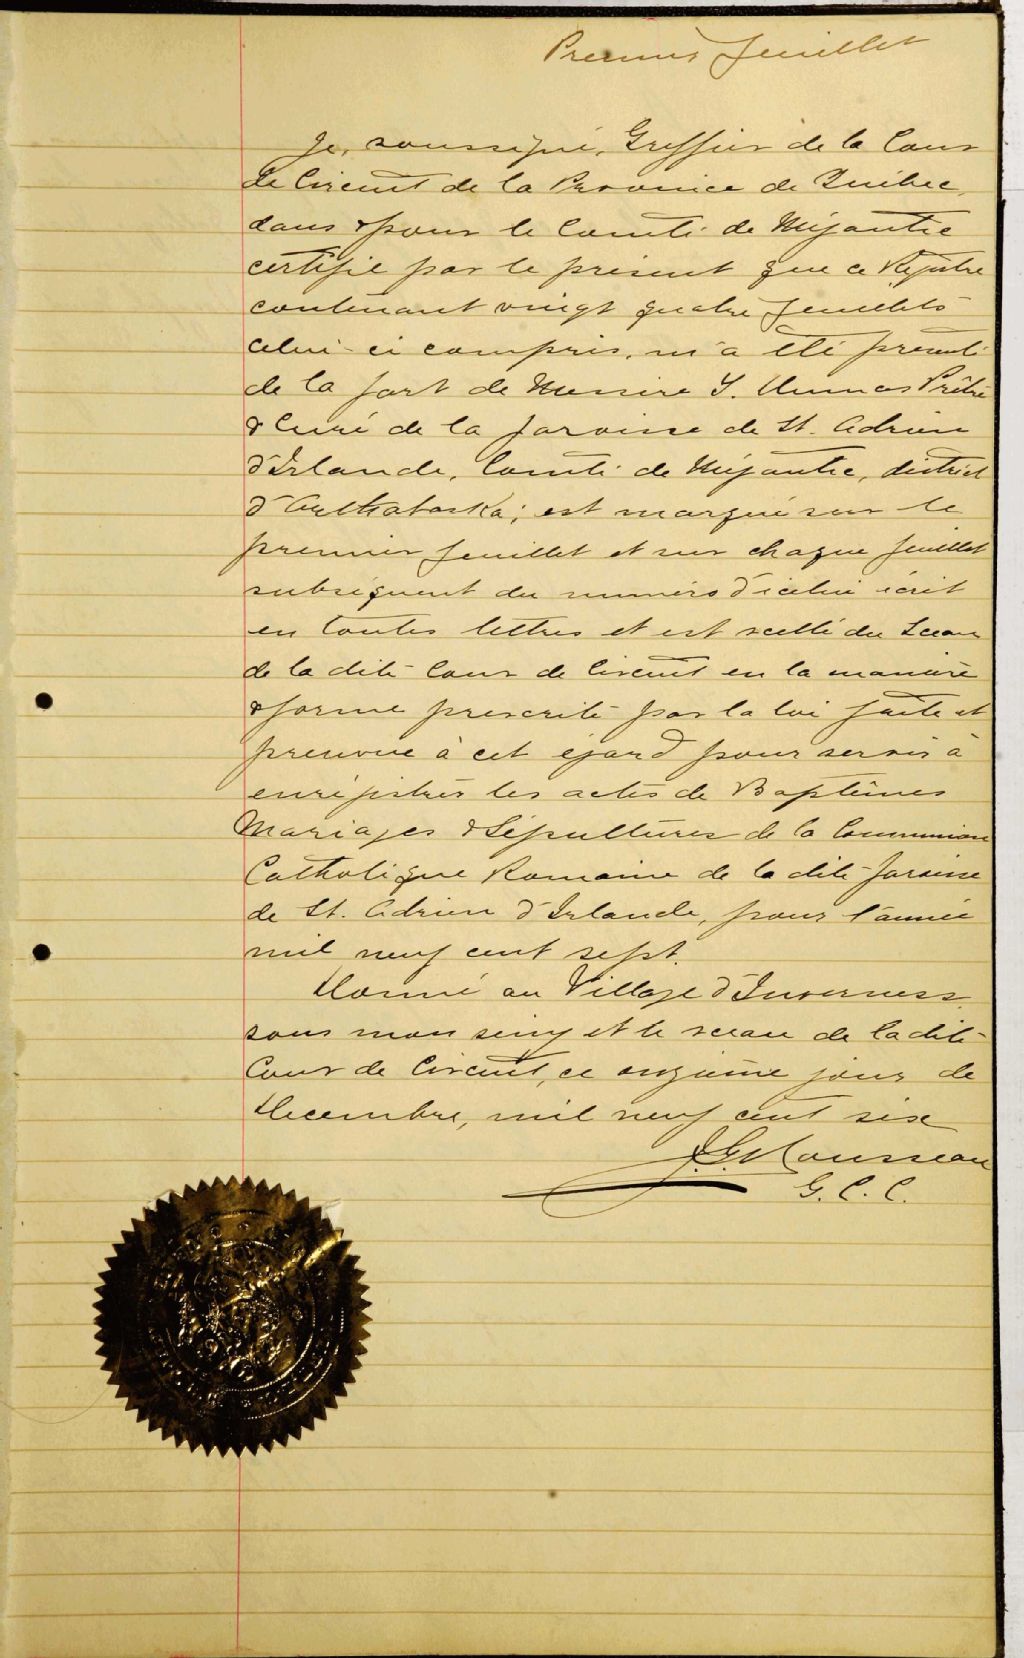 Premier feuillet
Je, soussigné, Greffier de la Cour
de Circuit de la Province de Québec,
dans & pour le Comté de Mégantic
certifie par le présent que ce Régistre
contenant vingt quatre feuillets
celui-ci compris, m'a été présenté
de la part de Messire Prêtre
& Curé de la paroisse de St. Adrien
d'Irlande, Comté de Mégantic, district
d'Arthabaska; est marqué sur le
premier feuillet et sur chaque feuillet
subséquent du numéro d'icelui écrit
en toutes lettres et est scellé du Sceau
de la dite Cour de Circuit en la manière
& forme prescrite par la loi faite et
pourvue à cet égard pour servir à
enrégistrer les actes de Baptêmes
Mariages & Sépultures de la Communion
Catholique Romaine de la dite paroisse
de St. Adrien d'Irlande, pour l'année
mil neuf cent sept.
Donné au Village d'Inverness
sous mon seing et le sceau de la dite
Cour de Circuit, ce onzième jour de
Décembre, mil neuf cent six
J.G. Rousseau
G. C. C.